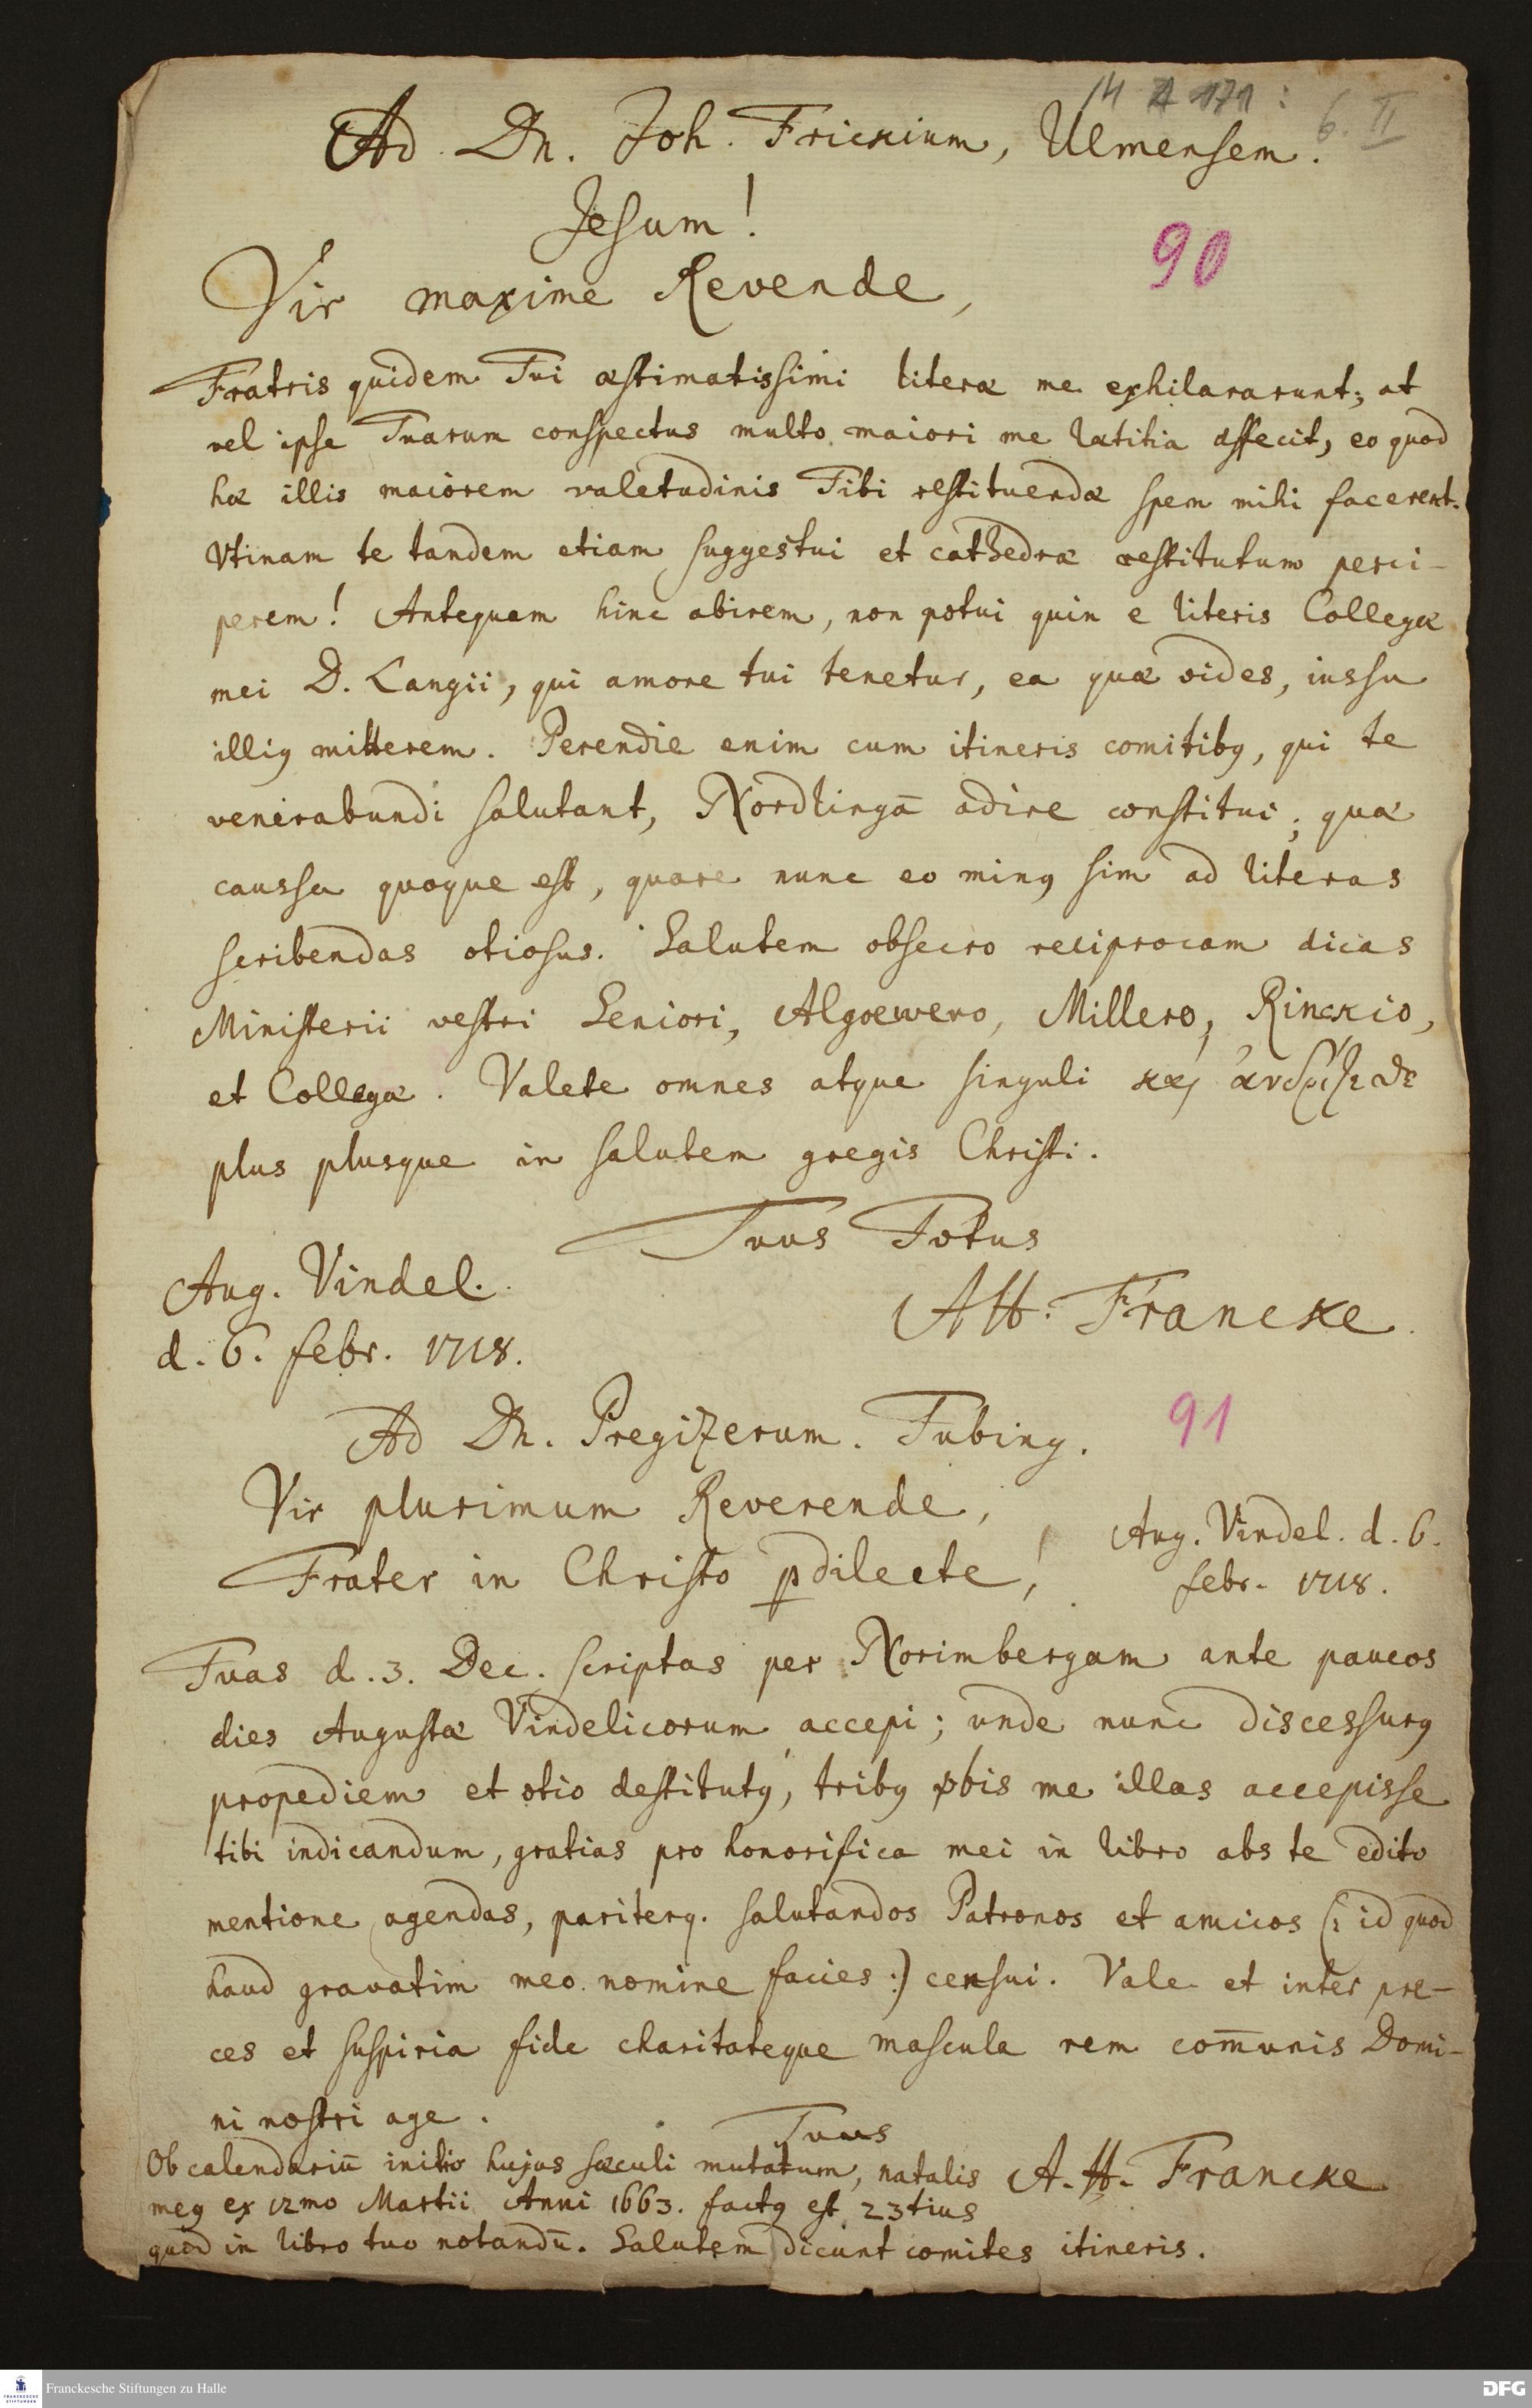 14 171:
6. II
Ad Dn. Joh. Frickium, Ulmensem.
Jesum!
90
Vir maxime Revende,
Fratris quidem Tui æstimatissimi literæ me exhilararunt; at
vel ipse Tuarum conspectus multo maiori me lætitia affecit, eo quod
hæ illis maiorem valetudinis Tibi restituendæ spem mihi facerent.
Vtinam te tandem etiam suggestui et cathedræ restitutum perci-
perem! Antequam hinc abirem, non potui quin e literis Collegæ
mei D. Langii, qui amore tui tenetur, ea quæ vides, iussu
illiꝰ mitterem. Perendie enim cum itineris comitibꝰ, qui te
venerabundi salutant, Nordlingā adire constitui; quæ
caussa quoque est, quare nunc eo minꝰ sim ad literas
scribendas otiosus. Salutem obsecro reciprocam dicas
Ministerii vestri Seniori, Algoewero, Millero, Rinckio,
et Collegæ. Valete omnes atque singuli καὶ ἀνδρίζεσθε
plus plusque in salutem gregis Christi.
Tuus Totus
Aug. Vindel.
AH. Francke.
d. 6. febr. 1718.
91
Ad Dn. Pregizerum. Tubing.
Vir plurimum Reverende,
Aug. Vindel. d. 6.
Frater in Christo p̱dilecte!
febr. 1718.
Tuas d. 3. Dec. scriptas per Norimbergam ante paucos
dies Augustæ Vindelicorum accepi; unde nunc discessurꝰ
propediem et otio destitutꝰ, tribꝰ vbis me illas accepisse
tibi indicandum, gratias pro honorifica mei in libro abs te edito
mentione agendas, pariterq. salutandos Patronos et amicos (: id quod
haud gravatim meo nomine facies :) censui. Vale et inter pre-
ces et suspiria fide charitateque mascula rem com̄unis Domi-
ni nostri age.
Tuus
Ob calendariū initio hujus sæculi mutatum, natalis
A. H. Francke
meꝰ ex 12mo Martii Anni 1663. factꝰ est 23tius
quod in libro tuo notandū. Salutem dicunt comites itineris.
Franckesche Stiftungen zu Halle
FRANCKESCHE STIFTUNGEN
DFG